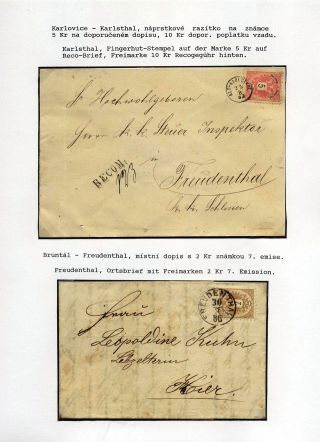 Karlovice - Karlsthal, náprstkové razítko na známce
5 Kr na doporučeném dopisu, 10 Kr dopor. poplatku vzadu.
Karlsthal, Fingerhut-Stempel auf der Marke 5 Kr auf
Reco-Brief, Freimarke 10 Kr Recogegühr hinten.
Sr Hochwohlgeboren
Herrn k. k. Steuer Inspektor
in
RECOM.
Freudenthal
k. k. Schlesien
Bruntál - Freudenthal, místní dopis s 2 Kr známkou 7. emise.
Freudenthal, Ortsbrief mit Freimarken 2 Kr 7. Emission.
FREUDENTHAL
30
86
Frau
Leopoldine Kuhn
Lebzelterin
Hier.